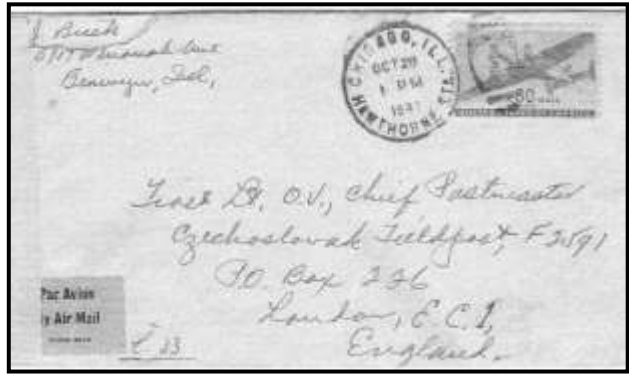 J. Buch
Wenonah Ave
Berwyn, Ill,
CHICAGO, ILL.
OCT 20
1 PM
HAWTHORNE STA.
Lt. O.V., Chief Postmaster
Czechoslovak Fieldpost, F 2591
P.O. Box 226
London, E.C.1,
England.
Par Avion
By Air Mail